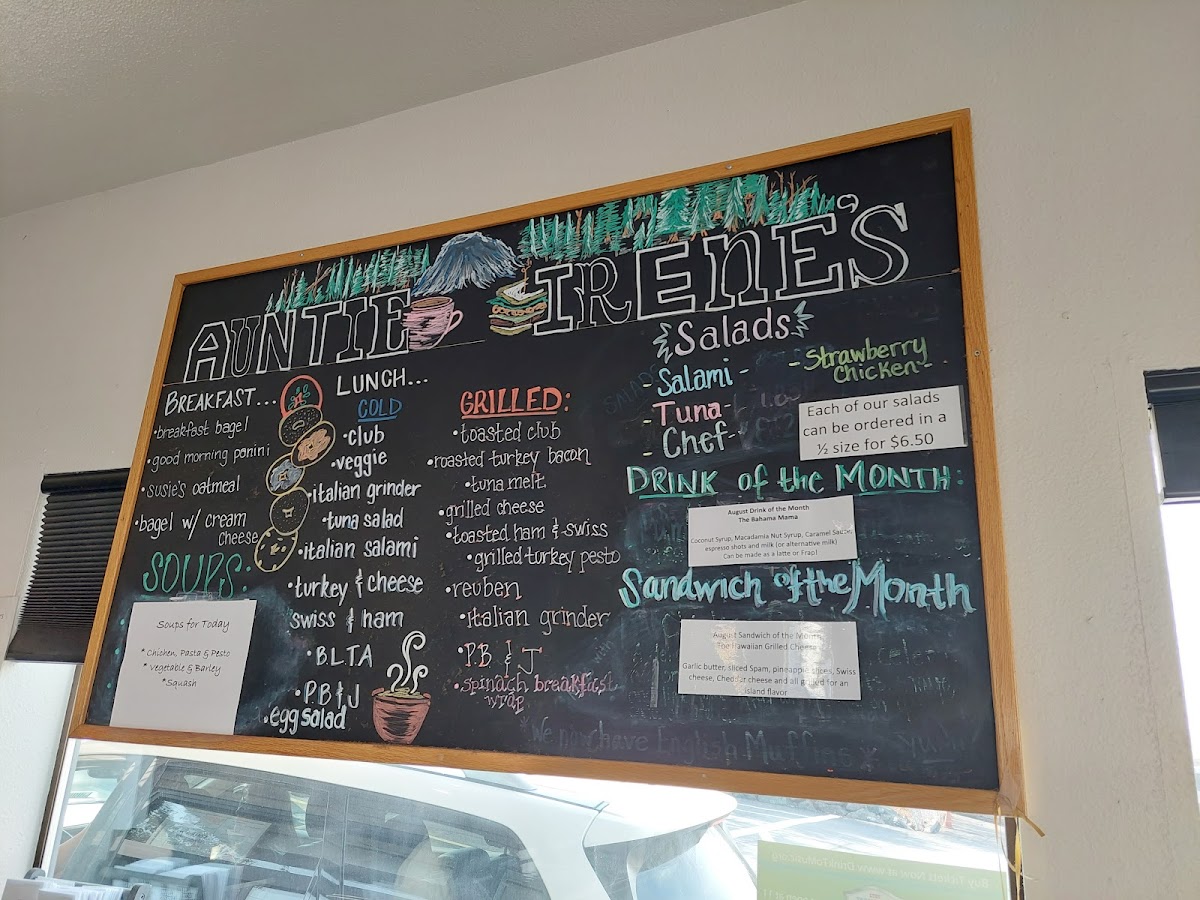 AUNTIE IRENE'S
BREAKFAST...
•breakfast bagel
•good morning panini
•susie's oatmeal
•bagel w/ cream
cheese
SOUPS:
Soups for Today
* Chicken, Pasta & Pesto
* Vegetable & Barley
*Squash
LUNCH...
COLD
•club
•veggie
•italian grinder
•tuna salad
•italian salami
•turkey & cheese
swiss & ham
•B.L.T.A
•P.B & J
•egg salad
GRILLED:
•toasted club
•roasted turkey bacon
•tuna melt
•grilled cheese
•toasted ham & swiss
•grilled turkey pesto
•reuben
•italian grinder
•P.B & J
•spinach breakfast
wrap
Salads
-Salami-
-Tuna-
-Chef-
-Strawberry
Chicken-
Each of our salads
can be ordered in a
½ size for $6.50
DRINK of the MONTH:
August Drink of the Month
The Bahama Mama
Coconut Syrup, Macadamia Nut Syrup, Caramel Sauce,
espresso shots and milk (or alternative milk)
Can be made as a latte or Frap!
Sandwich of the Month
August Sandwich of the Month
The Hawaiian Grilled Cheese
Garlic butter, sliced Spam, pineapple slices, Swiss
cheese, Cheddar cheese and all grilled for an
island flavor
We now have English Muffins
Buy Tickets Now at www.